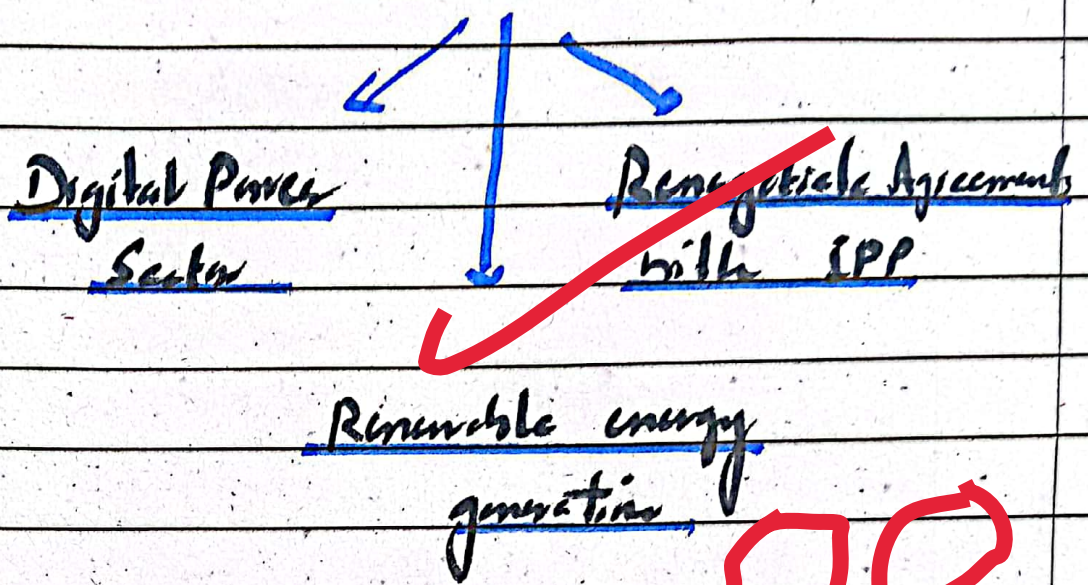 Digital Power
Sector
Renegotiate Agreements
with IPP
Renewable energy
generation